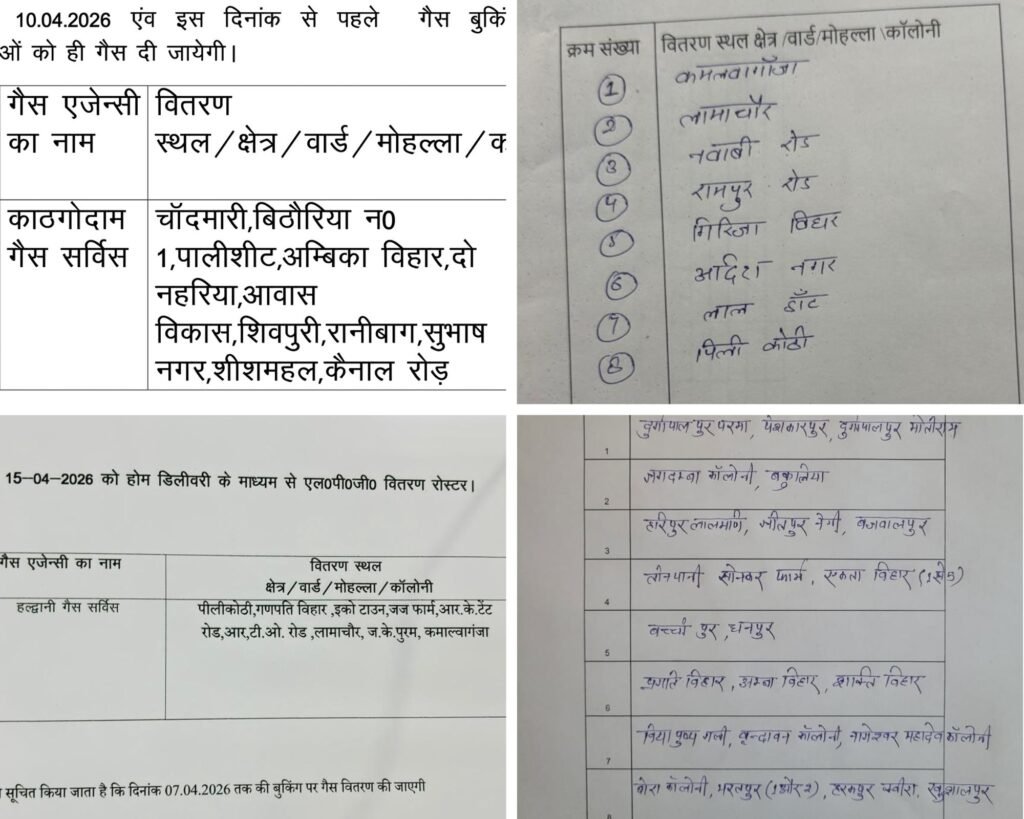 10.04.2026 एंव इस दिनांक से पहले गैस बुकिं
ओं को ही गैस दी जायेगी।
गैस एजेन्सी का नाम
वितरण स्थल/क्षेत्र/वार्ड/मोहल्ला/क
काठगोदाम गैस सर्विस
चॉदमारी,बिठौरिया न0
1,पालीशीट,अम्बिका विहार,दो
नहरिया,आवास
विकास,शिवपुरी,रानीबाग,सुभाष
नगर,शीशमहल,कैनाल रोड़
क्रम संख्या वितरण स्थल क्षेत्र/वार्ड/मोहल्ला\कॉलोनी
1 कमलवागाँजा
2 लामाचौर
3 नवाबी रोड
4 रामपुर रोड
5 गिरिजा विहार
6 आर्दश नगर
7 लाल डाँट
8 पिली कोठी
15-04-2026 को होम डिलीवरी के माध्यम से एल0पी0जी0 वितरण रोस्टर।
गैस एजेन्सी का नाम
वितरण स्थल
क्षेत्र/वार्ड/मोहल्ला/कॉलोनी
हल्द्वानी गैस सर्विस
पीलीकोठी,गणपति विहार ,इको टाउन,जज फार्म,आर.के.टेंट
रोड,आर,टी.ओ. रोड ,लामाचौर, ज.के.पुरम, कमाल्वागंजा
सूचित किया जाता है कि दिनांक 07.04.2026 तक की बुकिंग पर गैस वितरण की जाएगी
1 दुर्गापाल पुर परमा, पेशकारपुर, दुर्गापालपुर मोतीराम
2 जगदम्बा कॉलोनी, बकुलिया
3 हरिपुर लालमणि, जीतपुर नेगी, बजवालपुर
4 तीनपानी सोनकर फार्म, एकता विहार (1से5)
5 बच्ची पुर, धनपुर
6 प्रगति विहार, अम्बा विहार, शान्ति विहार
7 पुष्प गली, वृन्दावन कॉलोनी, नागेश्वर महादेव कॉलोनी
8 बोरा कॉलोनी, भरतपुर (1और2), हरकपुर खुशालपुर